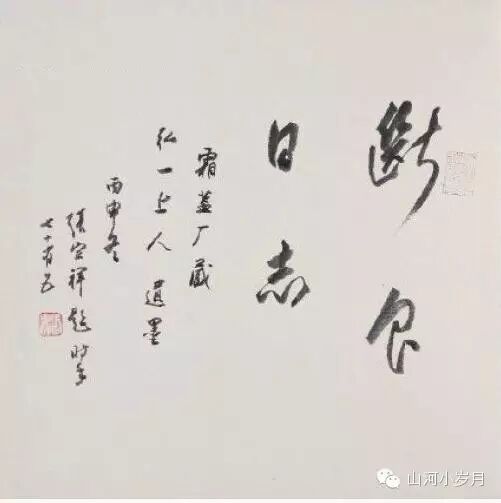 斷食
日志
霜蓋厂藏
弘一上人 遺墨
丙申冬
張宗祥題 時年
七十有五
山河小岁月